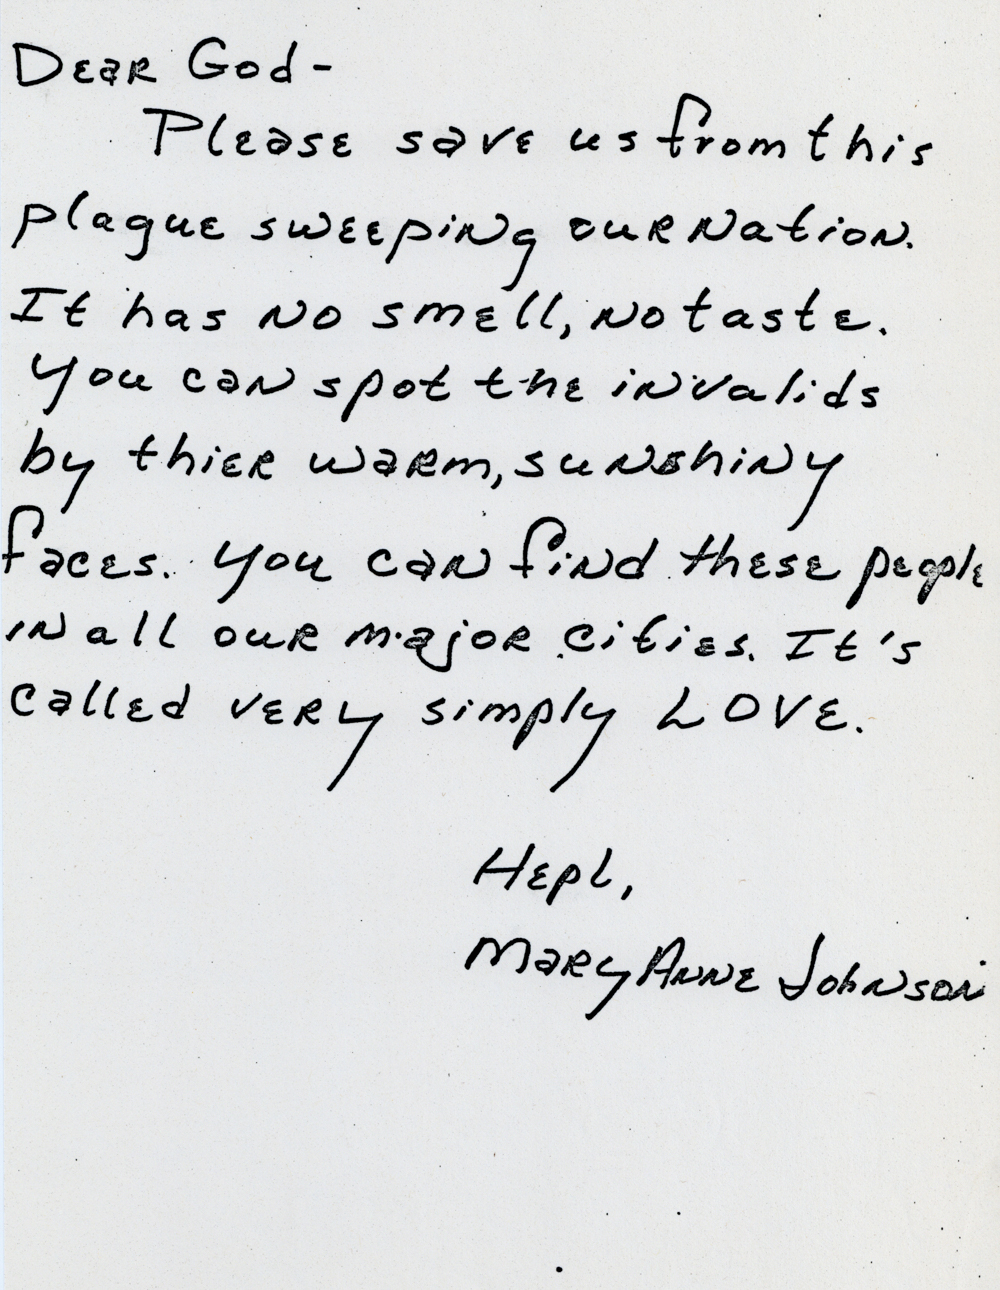 Dear God -
Please save us from this
plague sweeping our nation.
It has no smell, no taste.
You can spot the invalids
by thier warm, sunshiny
faces. You can find these people
in all our major cities. It's
called very simply LOVE.
Hepl,
Mary Anne Johnson